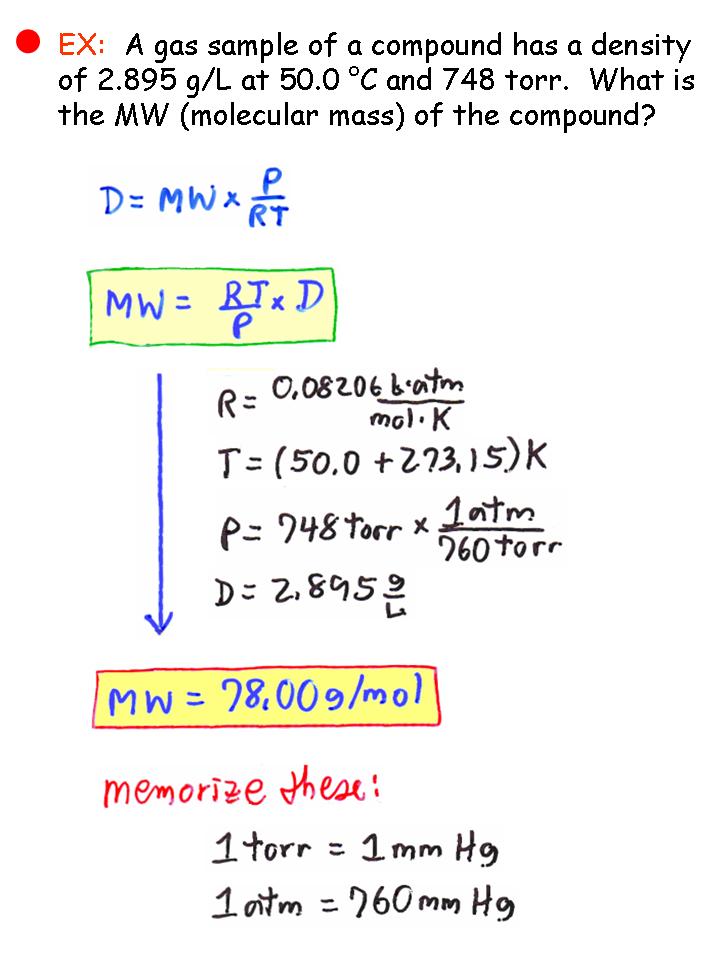 EX: A gas sample of a compound has a density
of 2.895 g/L at 50.0 °C and 748 torr. What is
the MW (molecular mass) of the compound?
D = MW × P/RT
MW = RT/P × D
R = 0.08206 L·atm/mol·K
T = (50.0 + 273.15) K
P = 748 torr × 1 atm/760 torr
D = 2.895 g/L
MW = 78.00 g/mol
memorize these:
1 torr = 1 mm Hg
1 atm = 760 mm Hg